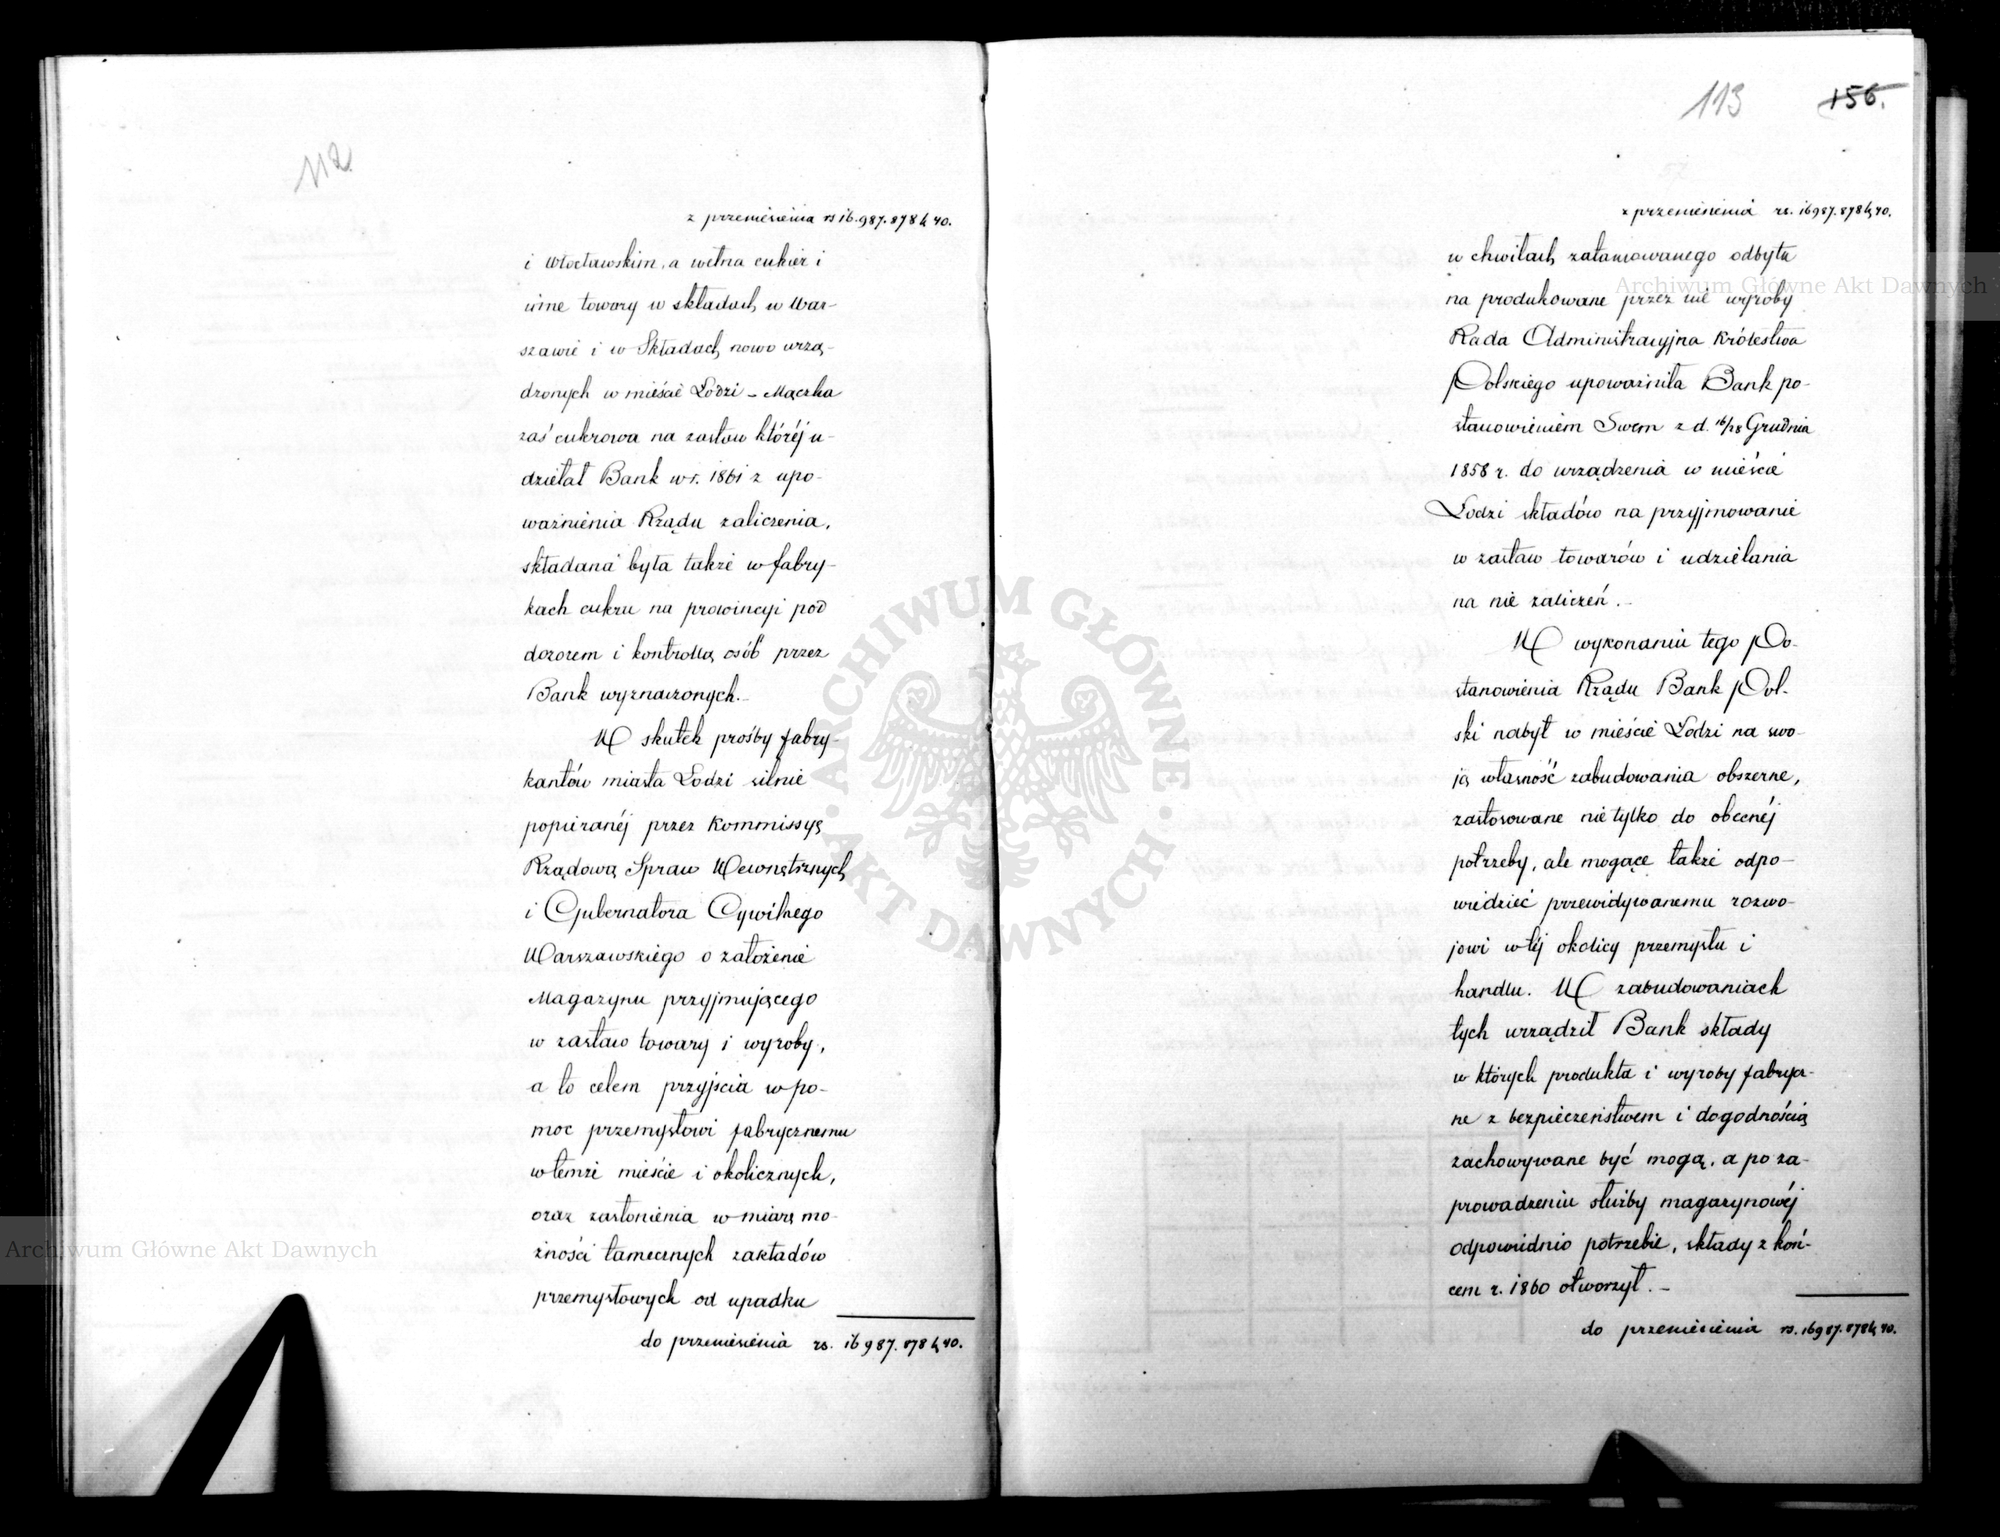 112
z przeniesienia rs 16.987.878 k 40.
i Włocławskim, a wełna cukier i
inne towary w składach w War-
szawie i w Składach nowo urzą-
dzonych w mieście Łodzi – Mączka
zaś cukrowa na zastaw któréj u-
dzielał Bank w r. 1861 z upo-
ważnienia Rządu zaliczenia,
składaną była także w fabry-
kach cukru na prowincyi pod
dozorem i kontrollą osób przez
Bank wyznaczonych.–
W skutek prośby fabry-
kantów miasta Łodzi silnie
popieranéj przez Kommissyę
Rządową Spraw Wewnętrznych
i Gubernatora Cywilnego
Warszawskiego o założenie
Magazynu przyjmującego
w zastaw towary i wyroby,
a to celem przyjścia w po-
moc przemysłowi fabrycznemu
w temże mieście i okolicznych,
oraz zasłonienia w miarę mo-
żności tamecznych zakładów
przemysłowych od upadku
do przeniesienia rs. 16 987. 878 k 40.
113
156.
z przeniesienia rs. 16987.878 k 40.
w chwilach zatamowanego odbytu
na produkowane przez nie wyroby
Rada Administracyjna Królestwa
Polskiego upoważniła Bank po-
stanowieniem Swem z d. 16/28 Grudnia
1858 r. do urządzenia w mieście
Łodzi składów na przyjmowanie
w zastaw towarów i udzielania
na nie zaliczeń.–
W wykonaniu tego Po-
stanowienia Rządu Bank Pol-
ski nabył w mieście Łodzi na swo-
ją własność zabudowania obszerne,
zastosowane nietylko do obecnéj
potrzeby, ale mogące także odpo-
wiedzieć przewidywanemu rozwo-
jowi w téj okolicy przemysłu i
handlu. W zabudowaniach
tych urządził Bank składy
w których produkta i wyroby fabrycz-
ne z bezpieczeństwem i dogodnością
zachowywane być mogą, a po za-
prowadzeniu służby magazynowéj
odpowiednio potrzebie, składy z koń-
cem r. 1860 otworzył.–
do przeniesienia rs. 16987.878 k 40.
Archiwum Główne Akt Dawnych
Archiwum Główne Akt Dawnych
ARCHIWUM GŁÓWNE · AKT DAWNYCH ·